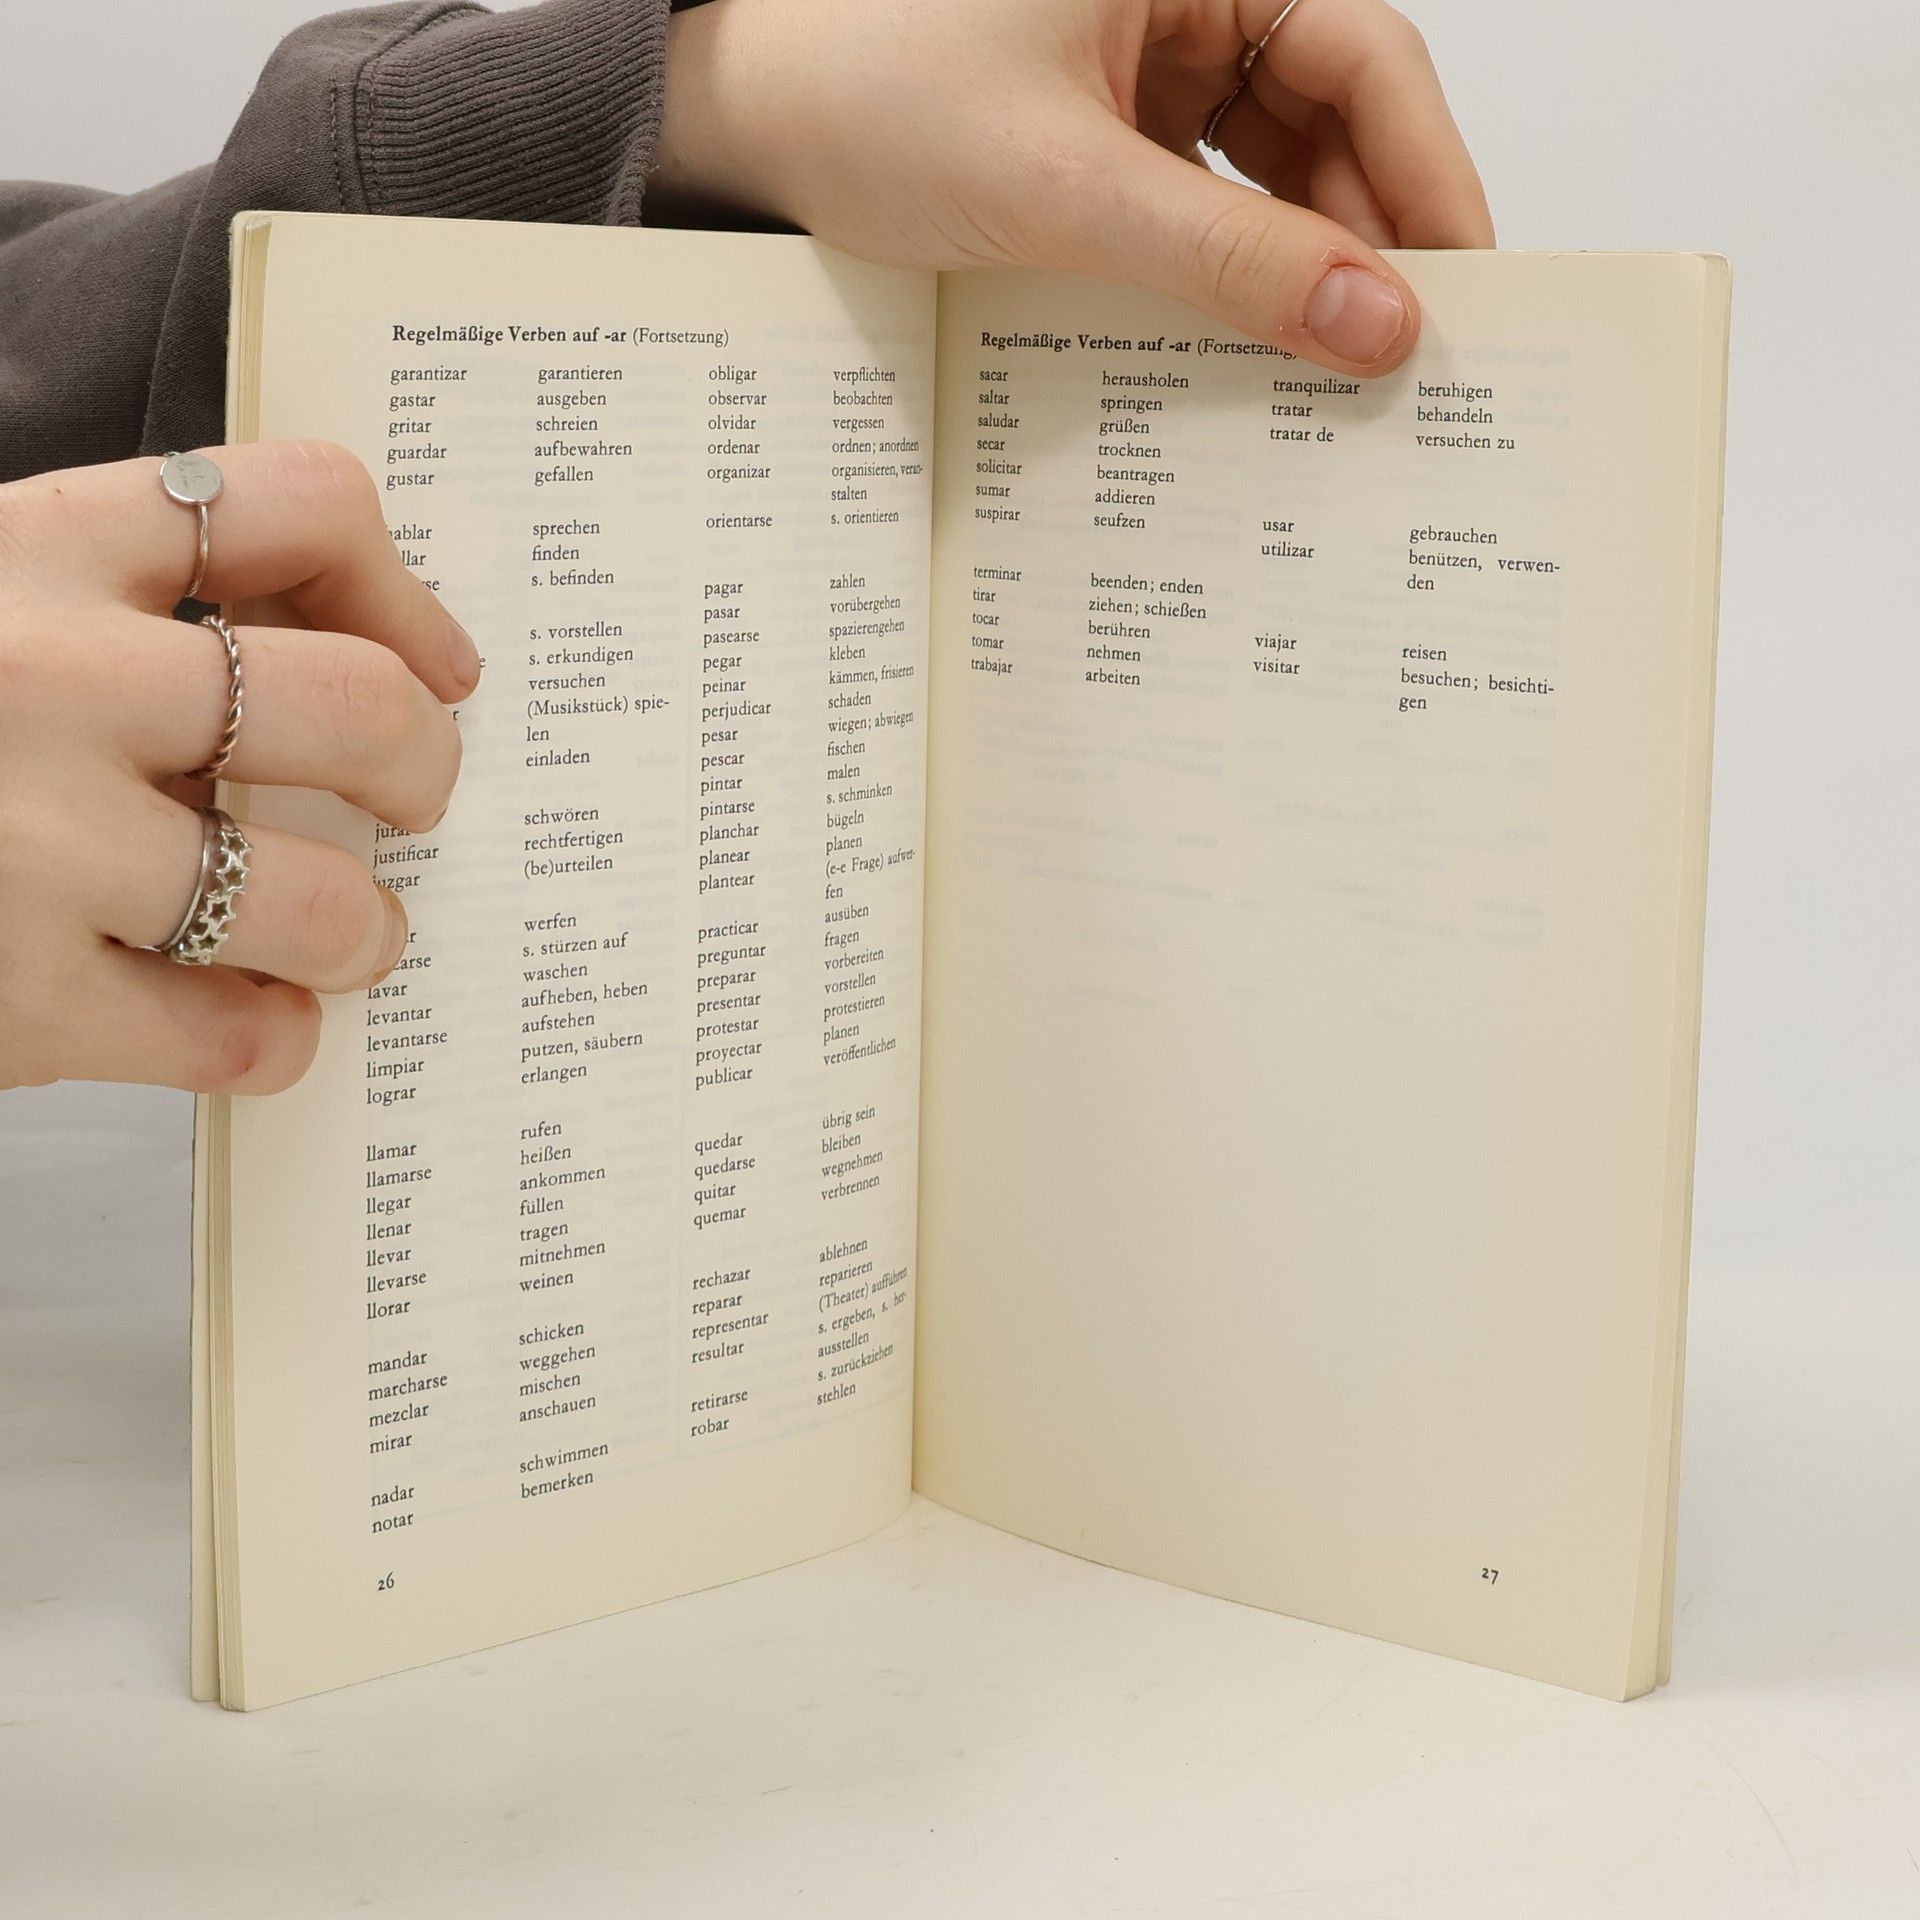 Regelmäßige Verben auf -ar (Fortsetzung)
garantizar garantieren
gastar ausgeben
gritar schreien
guardar aufbewahren
gustar gefallen
sprechen
finden
s. befinden
s. vorstellen
s. erkundigen
versuchen
(Musikstück) spie-
len
einladen
schwören
justificar rechtfertigen
(be)urteilen
werfen
s. stürzen auf
lavar waschen
levantar aufheben, heben
levantarse aufstehen
limpiar putzen, säubern
lograr erlangen
llamar rufen
llamarse heißen
llegar ankommen
llenar füllen
llevar tragen
llevarse mitnehmen
llorar weinen
mandar schicken
marcharse weggehen
mezclar mischen
mirar anschauen
nadar schwimmen
notar bemerken
obligar verpflichten
observar beobachten
olvidar vergessen
ordenar ordnen; anordnen
organizar organisieren, veran-
stalten
orientarse s. orientieren
pagar zahlen
pasar vorübergehen
pasearse spazierengehen
pegar kleben
peinar kämmen, frisieren
perjudicar schaden
pesar wiegen; abwiegen
pescar fischen
pintar malen
pintarse s. schminken
planchar bügeln
planear planen
plantear (e-e Frage) aufwer-
fen
practicar ausüben
preguntar fragen
preparar vorbereiten
presentar vorstellen
protestar protestieren
proyectar planen
publicar veröffentlichen
quedar übrig sein
quedarse bleiben
quitar wegnehmen
quemar verbrennen
rechazar ablehnen
reparar reparieren
representar (Theater) aufführen
resultar s. ergeben, s. her-
ausstellen
retirarse s. zurückziehen
robar stehlen
26
Regelmäßige Verben auf -ar (Fortsetzung)
sacar herausholen
saltar springen
saludar grüßen
secar trocknen
solicitar beantragen
sumar addieren
suspirar seufzen
terminar beenden; enden
tirar ziehen; schießen
tocar berühren
tomar nehmen
trabajar arbeiten
tranquilizar beruhigen
tratar behandeln
tratar de versuchen zu
usar gebrauchen
utilizar benützen, verwen-
den
viajar reisen
visitar besuchen; besichti-
gen
27